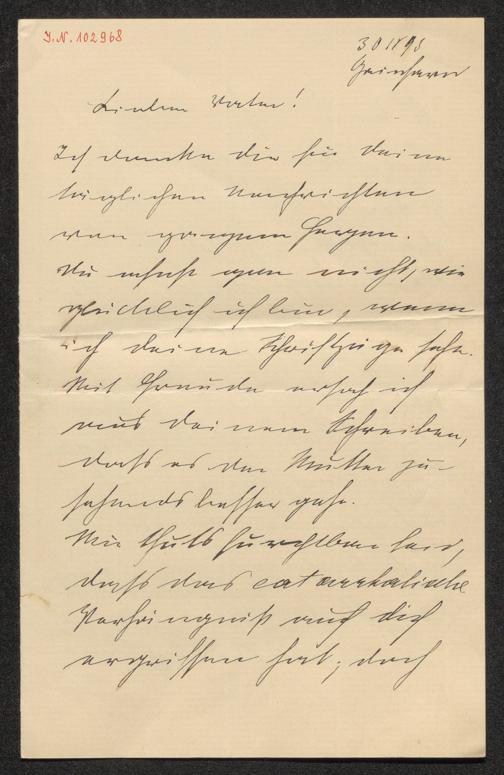 J.N. 102968
30 IX 95
Gainfarn
Lieber Vater!
Ich danke dir für deine
täglichen Nachrichten
von ganzem Herzen.
Du ahnst gar nicht, wie
glücklich ich bin, wenn
ich deine Schriftzüge sehe.
Mit Freude ersah ich
aus deinem Schreiben,
dass es der Mutter zu-
sehends besser gehe.
Mir thuts furchtbar leid,
dass das catarrhalische
Verhängniß auch dich
ergriffen hat; doch